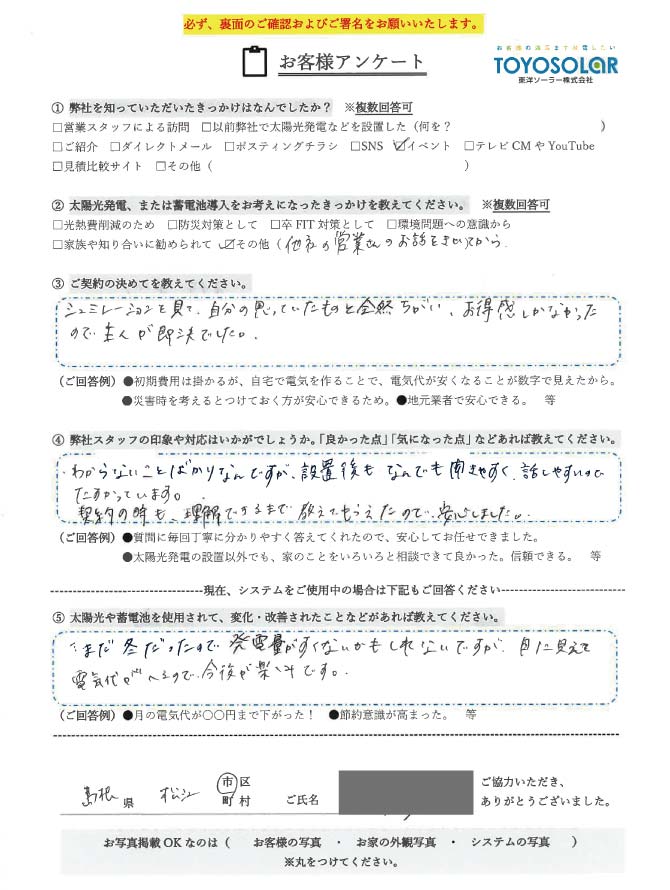 必ず、裏面のご確認およびご署名をお願いいたします。
お客様アンケート
お客様の満足まず発電したい
TOYOSOLAR
東洋ソーラー株式会社
① 弊社を知っていただいたきっかけはなんでしたか？ ※複数回答可
□営業スタッフによる訪問 □以前弊社で太陽光発電などを設置した（何を？ ）
□ご紹介 □ダイレクトメール □ポスティングチラシ □SNS ☑イベント □テレビCMやYouTube
□見積比較サイト □その他（ ）
② 太陽光発電、または蓄電池導入をお考えになったきっかけを教えてください。 ※複数回答可
□光熱費削減のため □防災対策として □卒FIT対策として □環境問題への意識から
□家族や知り合いに勧められて ☑その他（他社の営業さんのお話をきいてから.
③ ご契約の決めてを教えてください。
シュミレーションを見て、自分の思っていたものと全然ちがい、お得感しかなかった
ので主人が即決でした。
（ご回答例）●初期費用は掛かるが、自宅で電気を作ることで、電気代が安くなることが数字で見えたから。
●災害時を考えるとつけておく方が安心できるため。●地元業者で安心できる。 等
④ 弊社スタッフの印象や対応はいかがでしょうか。「良かった点」「気になった点」などあれば教えてください。
・わからないことばかりなんですが、設置後も なんでも聞きやすく、話しやすいので
たすかっています。
契約の時も、理解できるまで教えてもらえたので、安心しました。
（ご回答例）●質問に毎回丁寧に分かりやすく答えてくれたので、安心してお任せできました。
●太陽光発電の設置以外でも、家のことをいろいろと相談できて良かった。信頼できる。 等
現在、システムをご使用中の場合は下記もご回答ください
⑤ 太陽光や蓄電池を使用されて、変化・改善されたことなどがあれば教えてください。
まだ冬だったので発電量がすくないかもしれないですが、目に見えて
電気代がへるので、今後が楽しみです。
（ご回答例）●月の電気代が〇〇円まで下がった！ ●節約意識が高まった。 等
島根 県 松江 市 区 町 村 ご氏名
ご協力いただき、
ありがとうございました。
お写真掲載OKなのは（ お客様の写真 ・ お家の外観写真 ・ システムの写真 ）
※丸をつけてください。